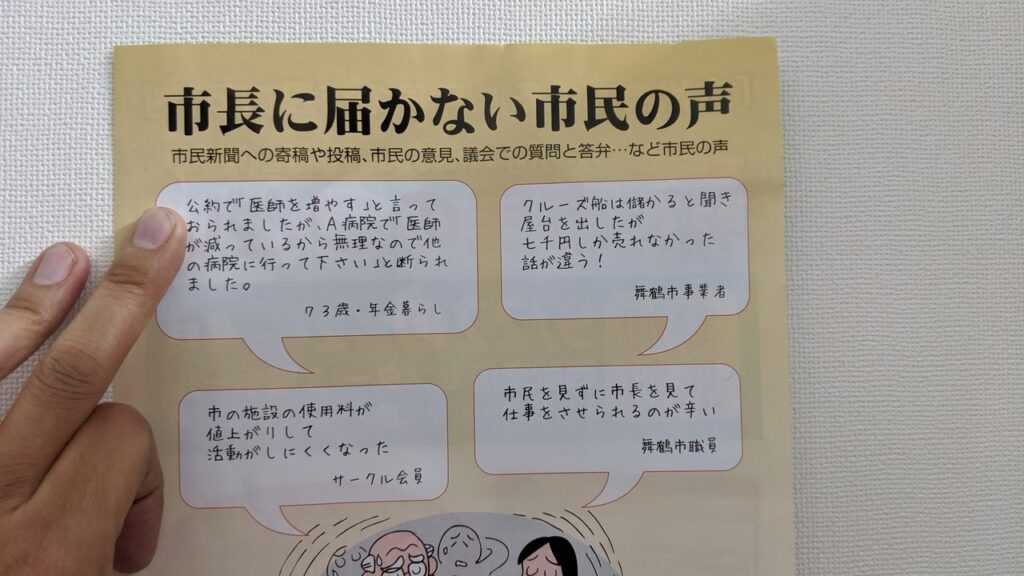 市長に届かない市民の声
市民新聞への寄稿や投稿、市民の意見、議会での質問と答弁…など市民の声
公約で「医師を増やす」と言って
おられましたが、A病院で「医師
が減っているから無理なので他
の病院に行って下さい」と断られ
ました。
73歳・年金暮らし
クルーズ船は儲かると聞き
屋台を出したが
七千円しか売れなかった
話が違う！
舞鶴市事業者
市の施設の使用料が
値上がりして
活動がしにくくなった
サークル会員
市民を見ずに市長を見て
仕事をさせられるのが辛い
舞鶴市職員